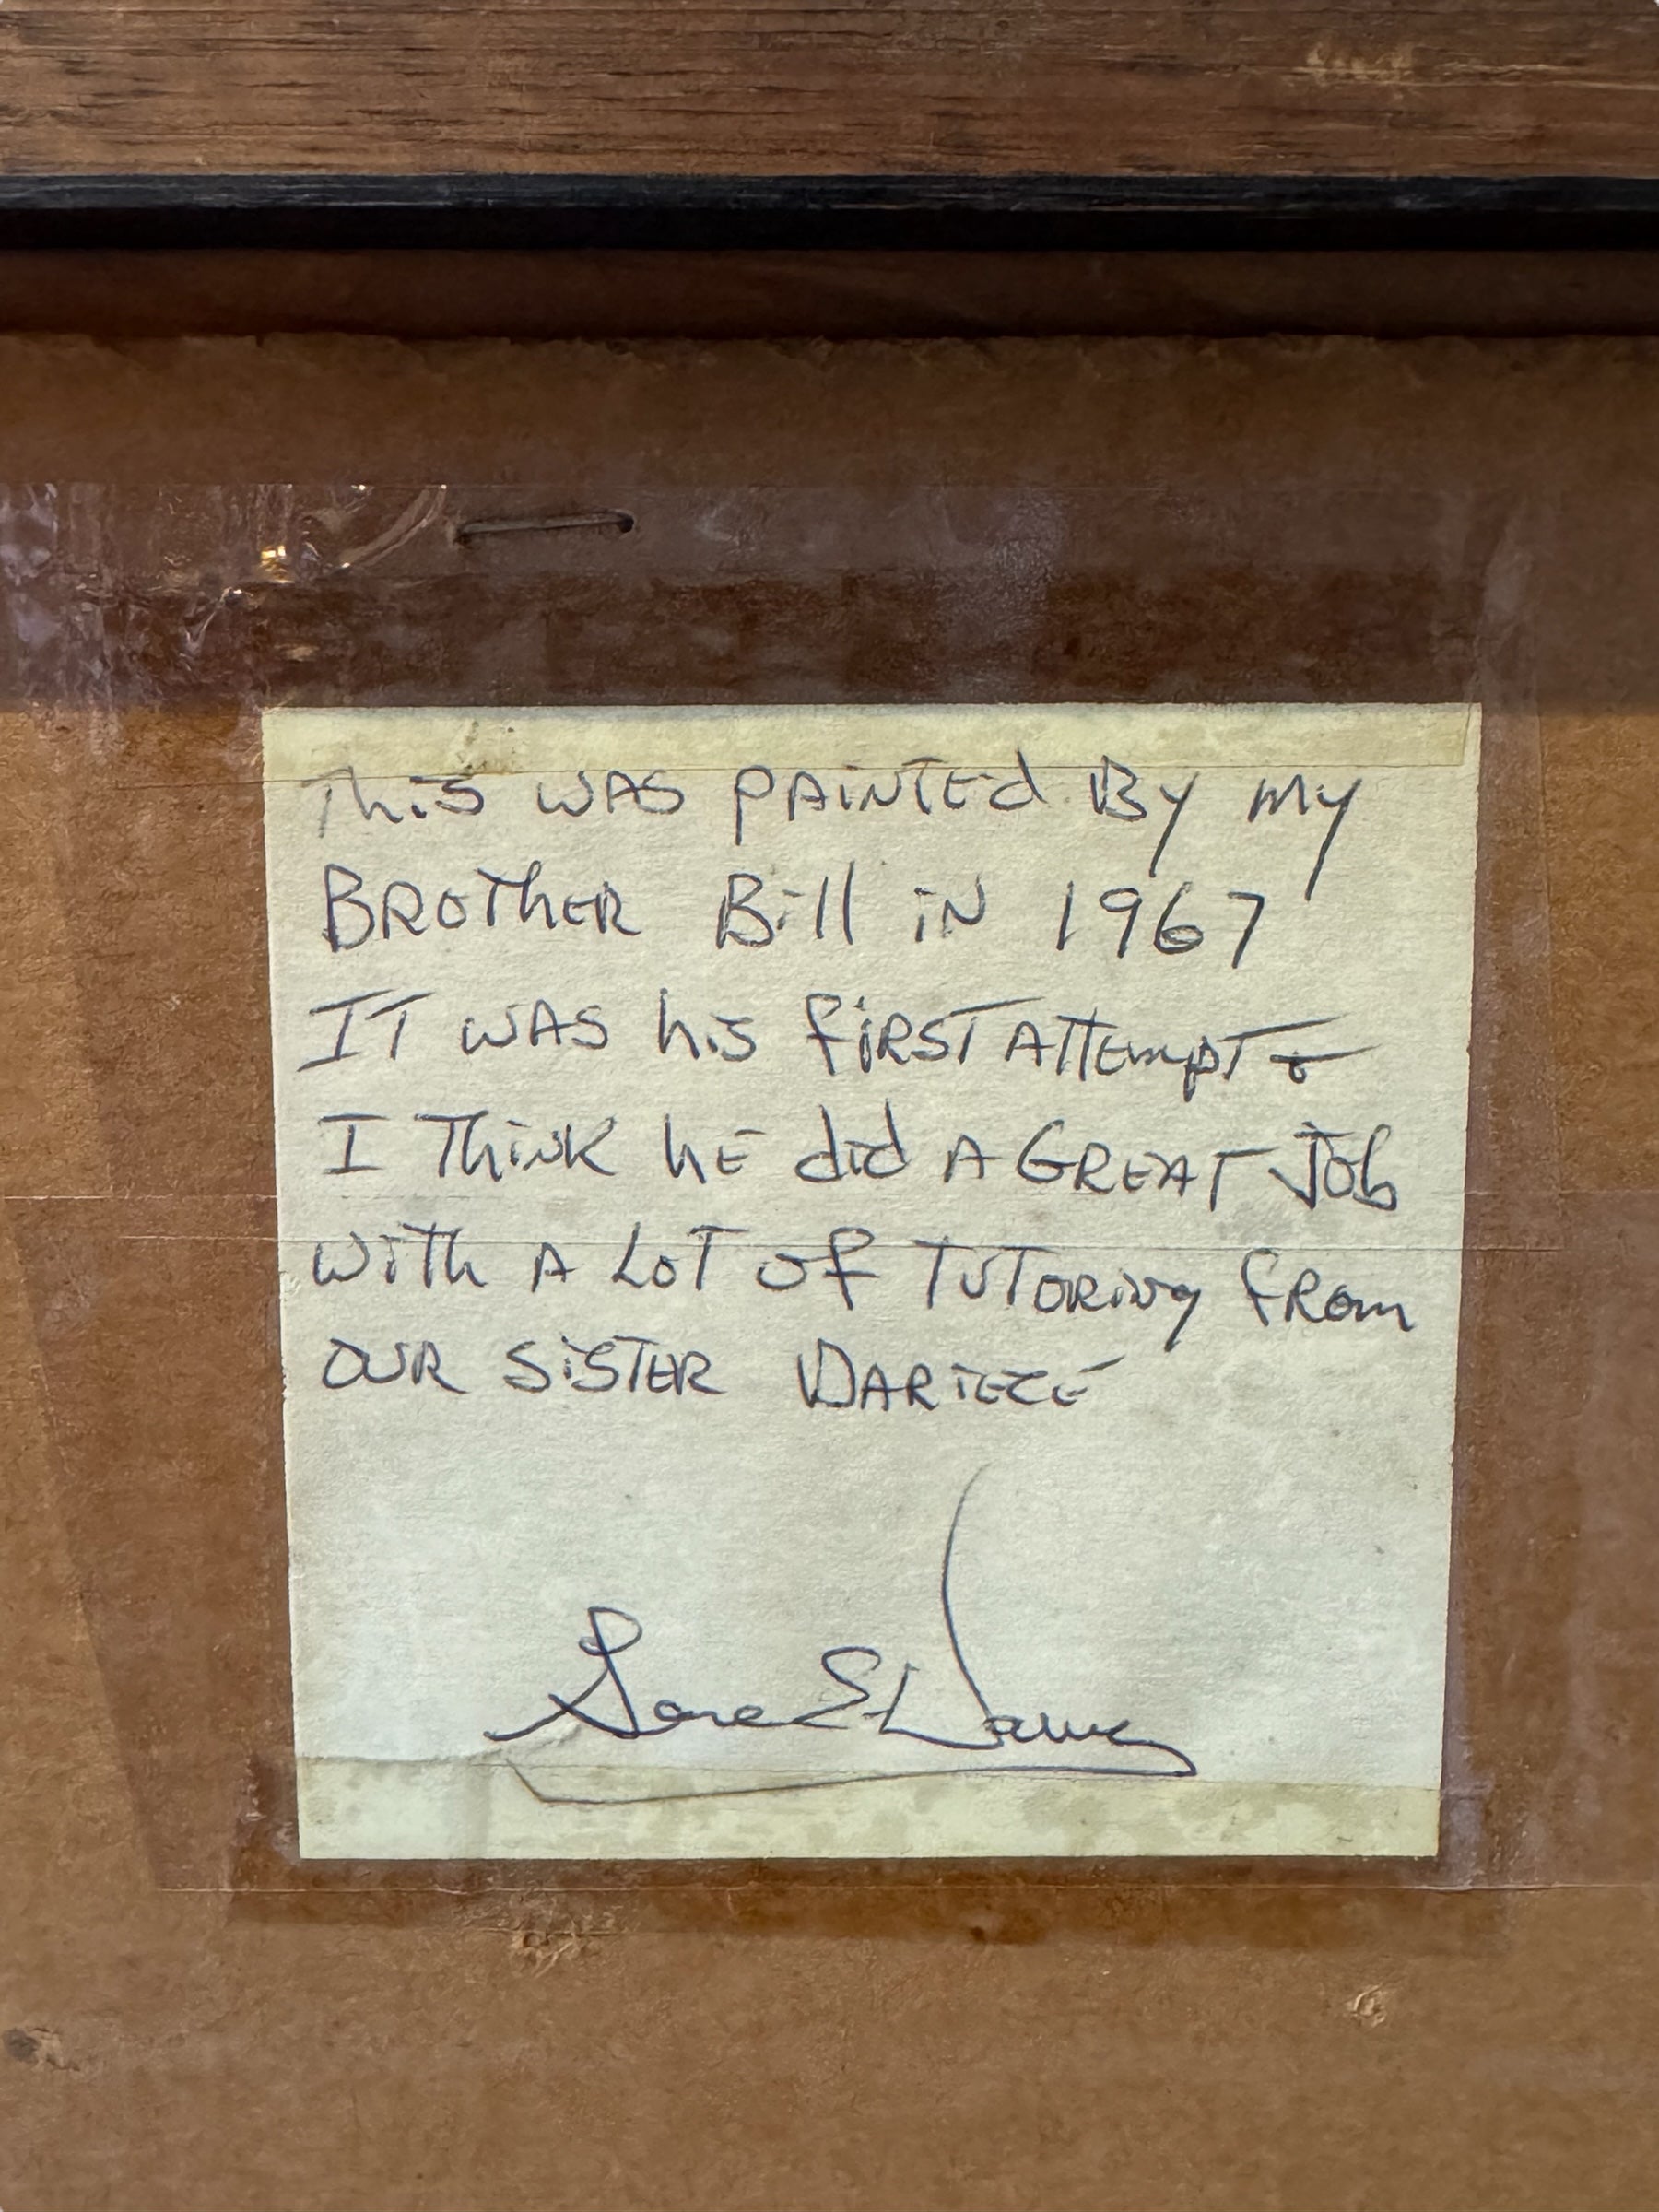 This was painted by my
Brother Bill in 1967
It was his first attempt &
I think he did a great job
with a lot of tutoring from
our sister
Gene E